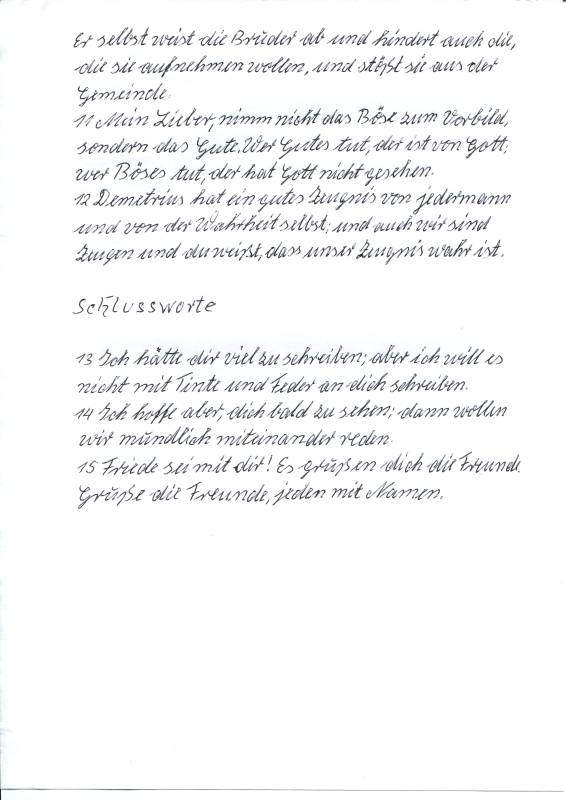 Er selbst weist die Brüder ab und hindert auch die,
die sie aufnehmen wollen, und stößt sie aus der
Gemeinde.
11 Mein Lieber, nimm nicht das Böse zum Vorbild,
sondern das Gute. Wer Gutes tut, der ist von Gott;
wer Böses tut, der hat Gott nicht gesehen.
12 Demetrius hat ein gutes Zeugnis von jedermann
und von der Wahrheit selbst; und auch wir sind
Zeugen und du weißt, dass unser Zeugnis wahr ist.
Schlussworte
13 Ich hätte dir viel zu schreiben; aber ich will es
nicht mit Tinte und Feder an dich schreiben.
14 Ich hoffe aber, dich bald zu sehen; dann wollen
wir mündlich miteinander reden.
15 Friede sei mit dir! Es grüßen dich die Freunde.
Grüße die Freunde, jeden mit Namen.